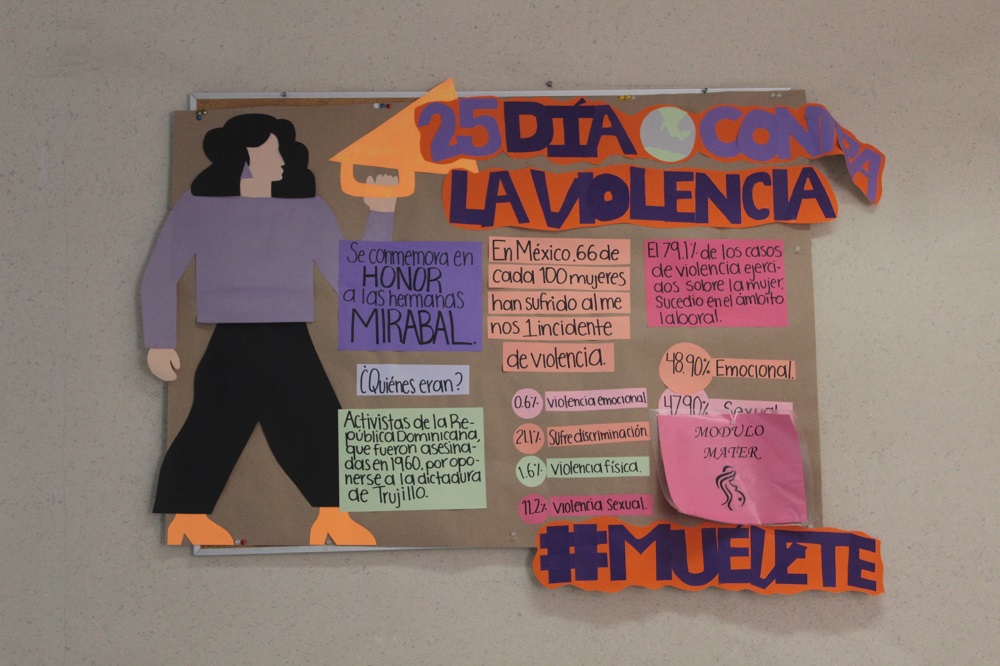 25 DÍA CONTRA
LA VIOLENCIA
Se conmemora en
HONOR
a las hermanas
MIRABAL.
¿Quiénes eran?
Activistas de la Re-
pública Dominicana,
que fueron asesina-
das en 1960, por opo-
nerse a la dictadura
de Trujillo.
En México, 66 de
cada 100 mujeres
han sufrido al me
nos 1 incidente
de violencia.
0.6% violencia emocional
21.1% Sufre discriminación
1.6% Violencia física.
11.2% Violencia Sexual.
El 79.1% de los casos
de violencia ejerci-
dos sobre la mujer,
Sucedio en el ámbito
laboral.
48.90% Emocional.
47.90% Sexual
MODULO
MATER
#MUÉVETE